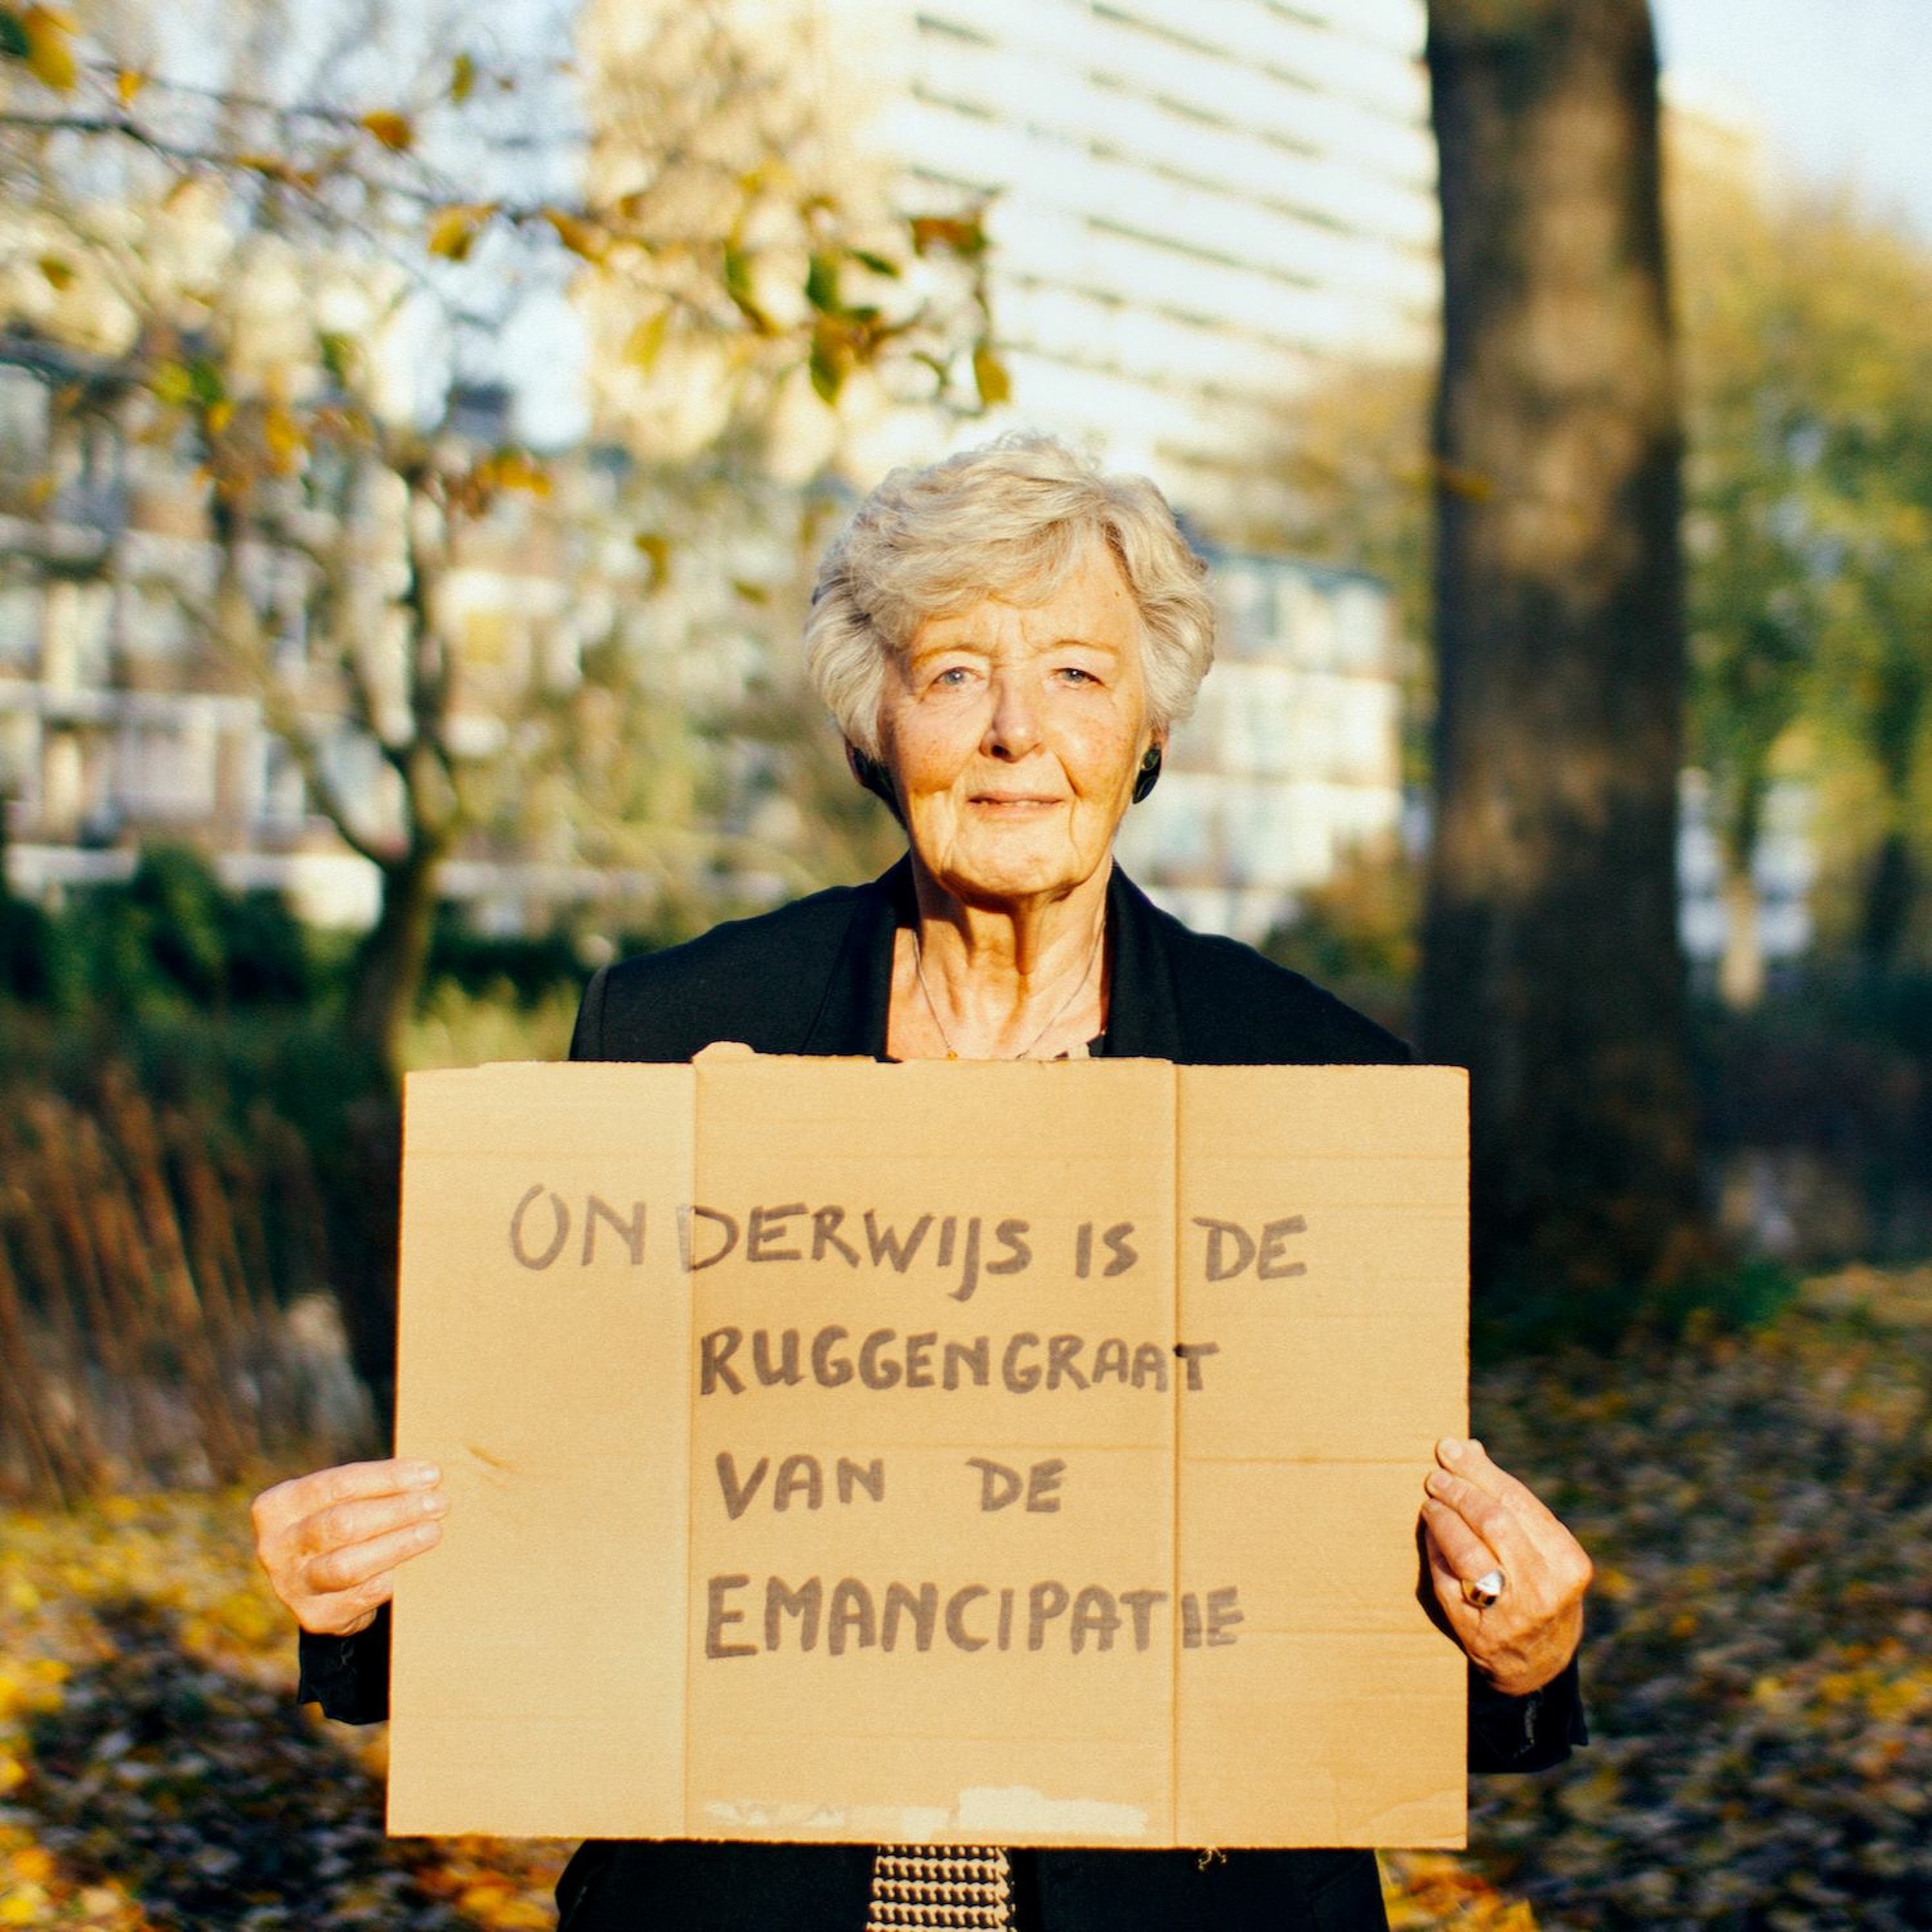 ONDERWIJS IS DE
RUGGENGRAAT
VAN DE
EMANCIPATIE